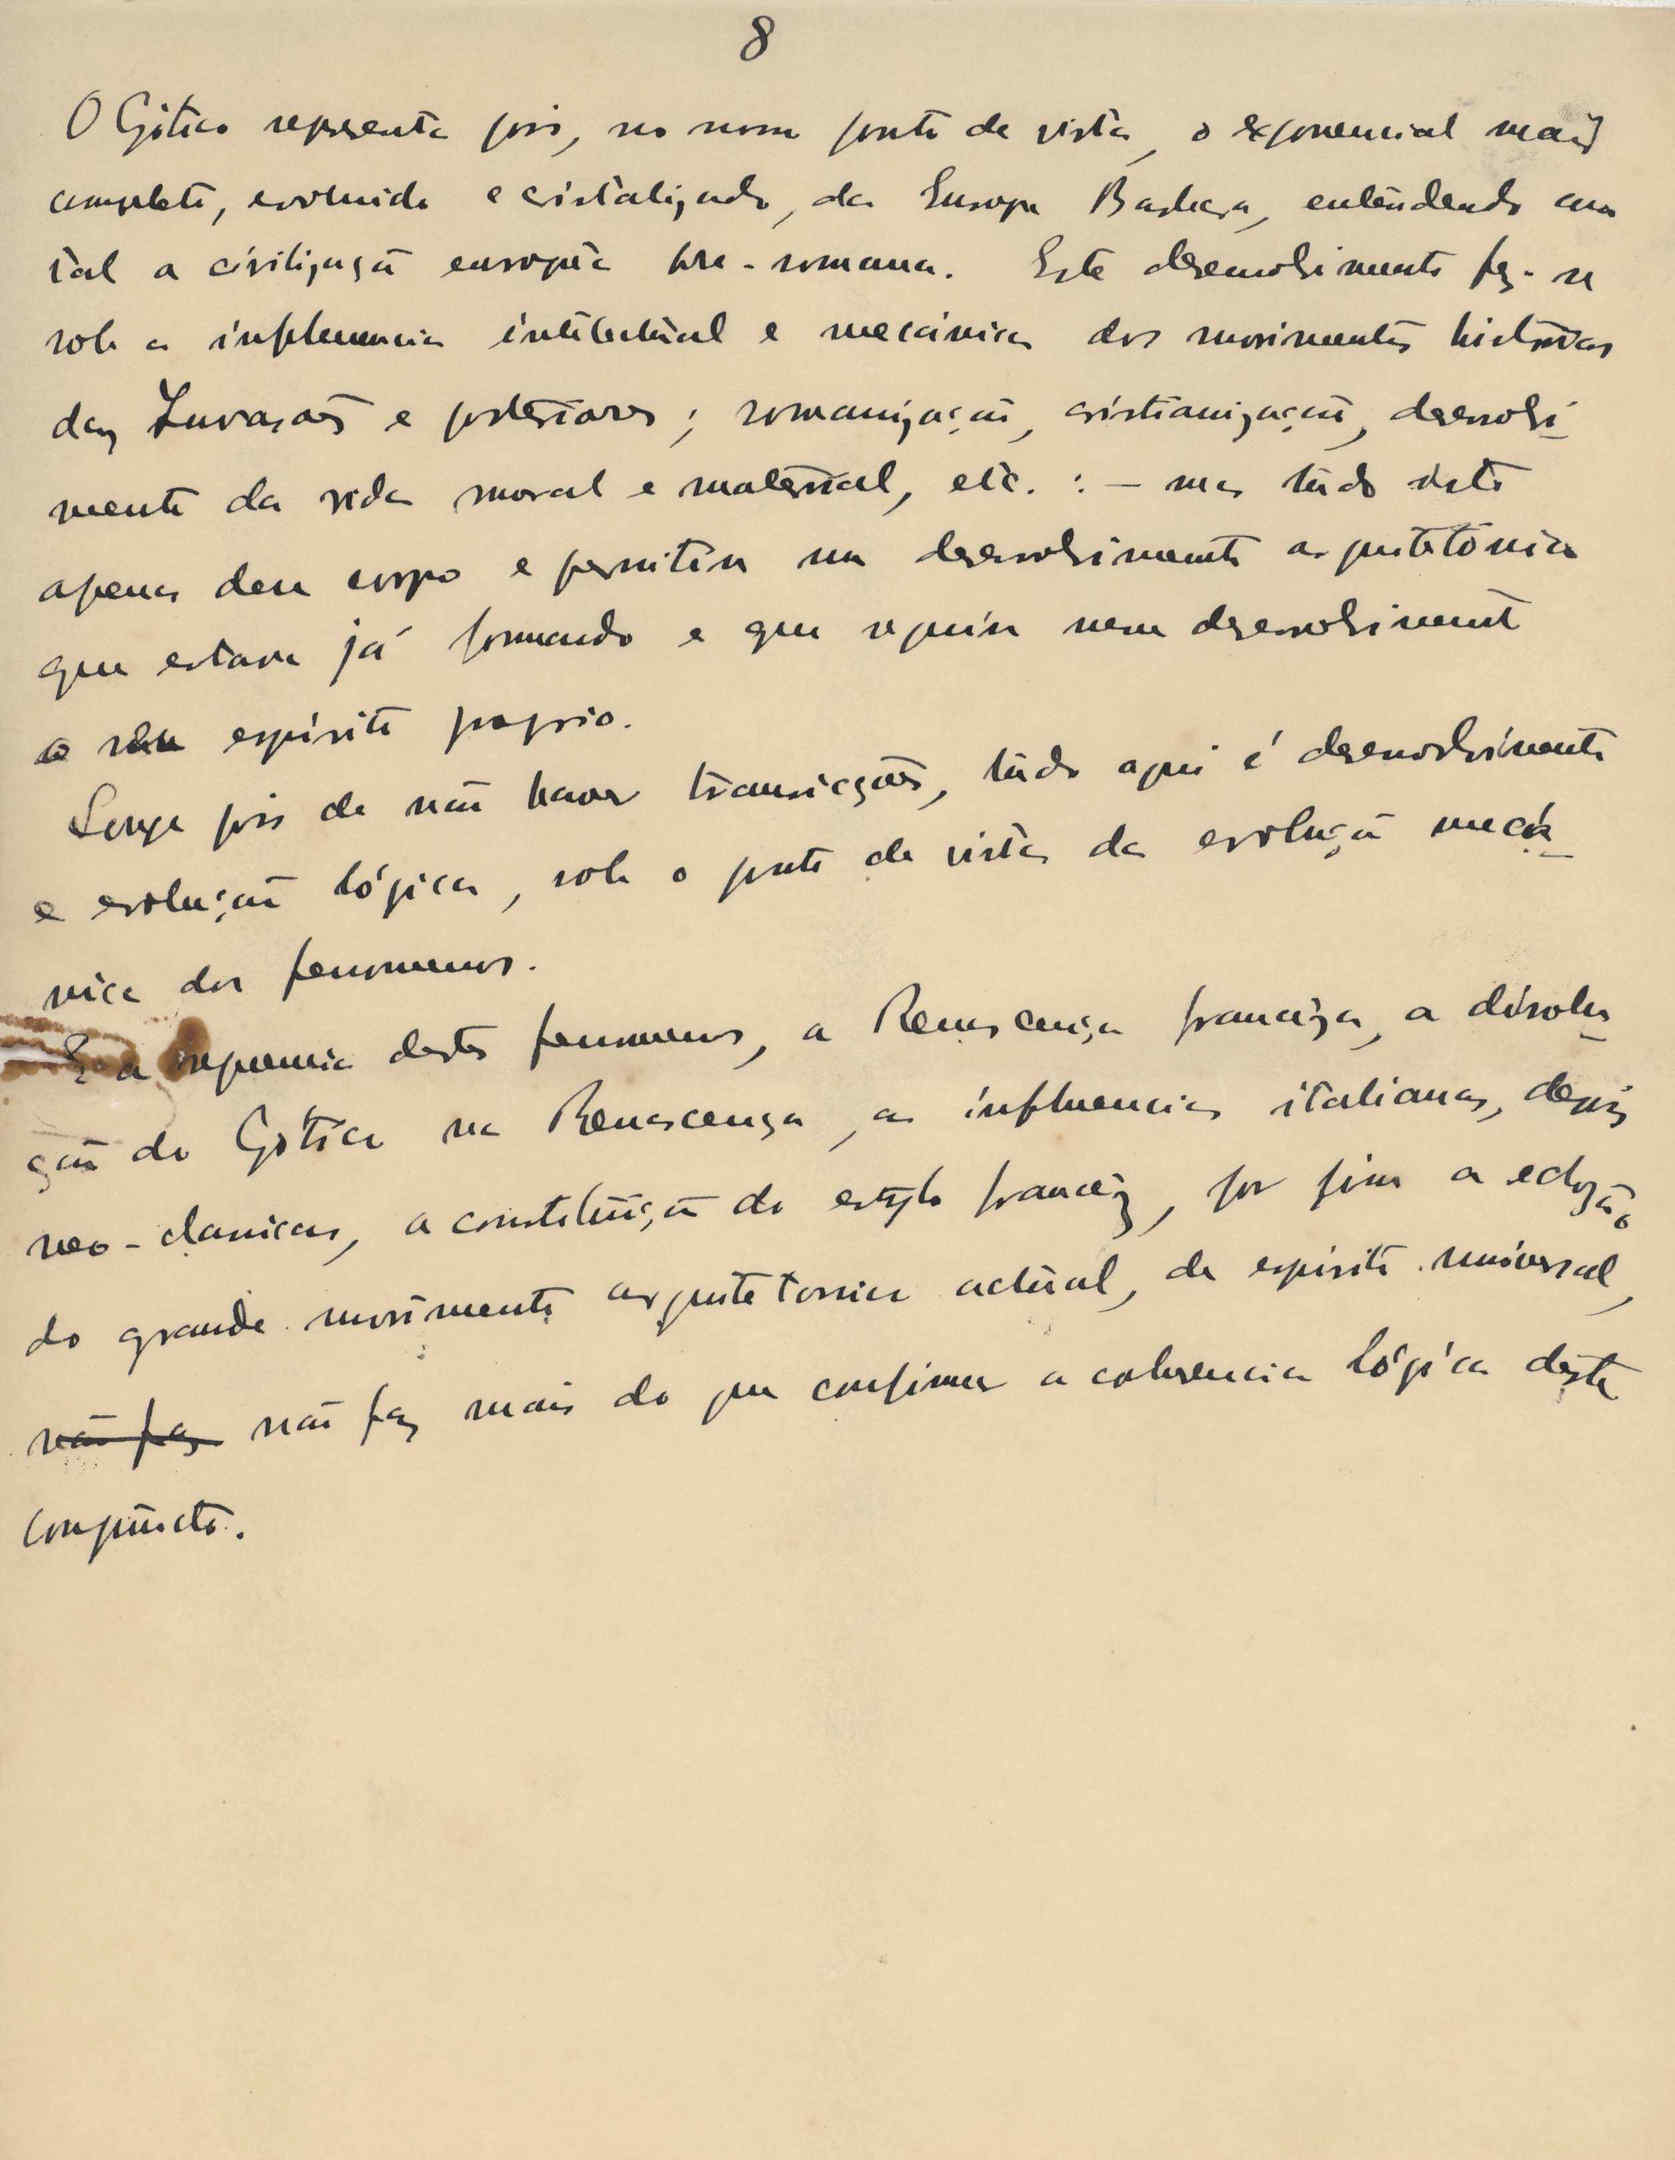 8
O Gótico representa pois, no nosso ponto de vista, o exponencial mais
completo, evoluido e cristalizado, da Europa Barbara, entendendo como
tal a civilização européa pre-romana. Este desenvolvimento fez-se
sob a influencia intelectual e mecánica dos movimentos historicos
das Invasões e posteriores; romanização, cristianização, desenvolvi-
mento da vida moral e material, etc. : — mas tudo isto
apenas deu corpo e permitiu um desenvolvimento arquitetónico
que estava já formando e que seguiu nesse desenvolvimento
o seu espírito proprio.
Longe pois de não haver transicções, tudo aqui é desenvolvimento
e evolução lógica, sob o ponto de vista da evolução mecá-
nica dos fenomenos.
E a sequencia destes fenomenos, a Renascença franceza, a disolu-
ção do Gotico na Renascença, as influencias italianas, depois
neo-classicas, a constituição do estylo francêz, por fim a eclozão
do grande movimento arquitetonico actual, de espirito universal,
não faz não faz mais do que confirmar a coherencia lógica deste
conjuncto.